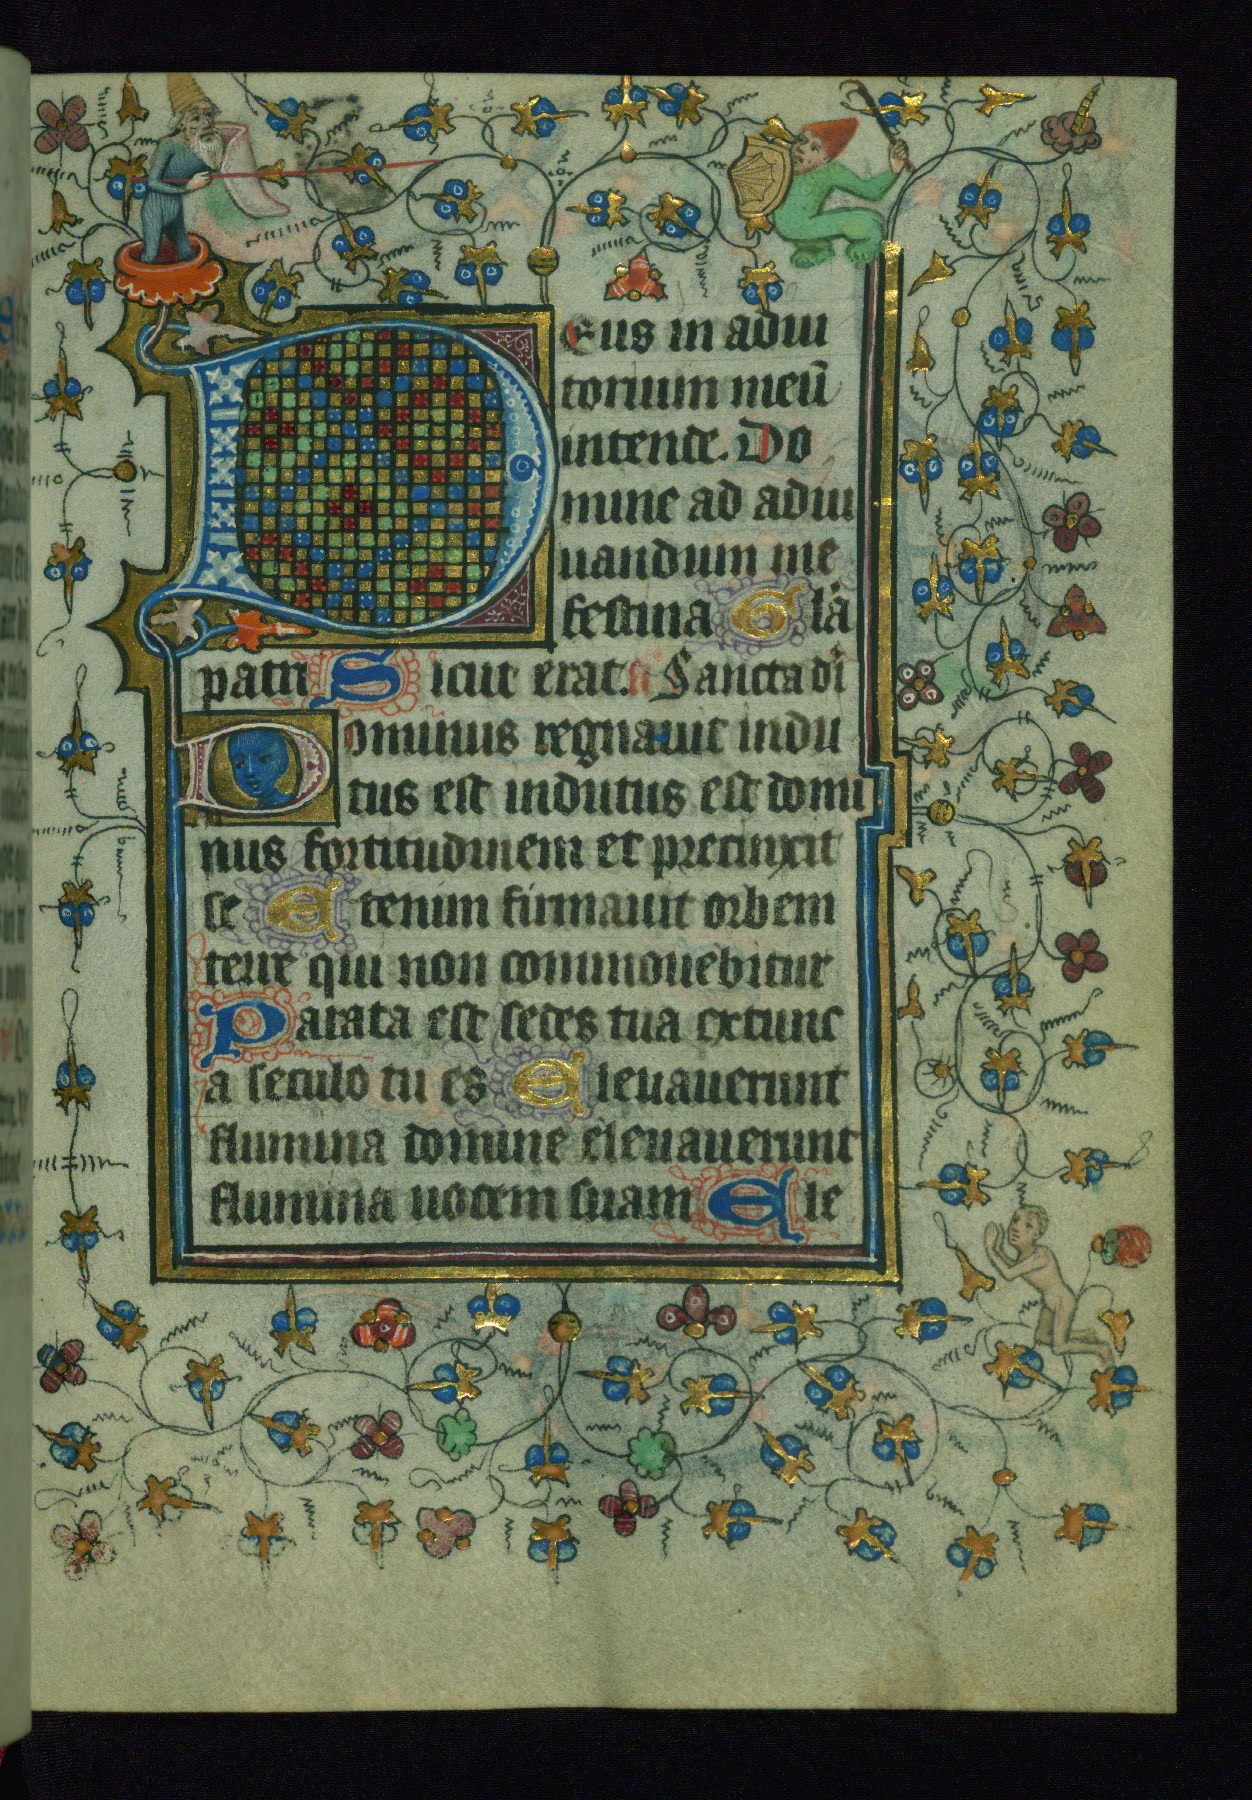 Deus in adiu
torium meū
intende. Do
mine ad adiu
uandum me
festina Glā
patri Sicut erat. a Sancta di
Dominus regnauit indu
tus est indutus est domi
nus fortitudinem et precinxit
se Etenim firmauit orbem
terre qui non commouebitur
Parata est sedes tua extunc
a seculo tu es Eleuauerunt
flumina domine eleuauerunt
flumina uocem suam Ele